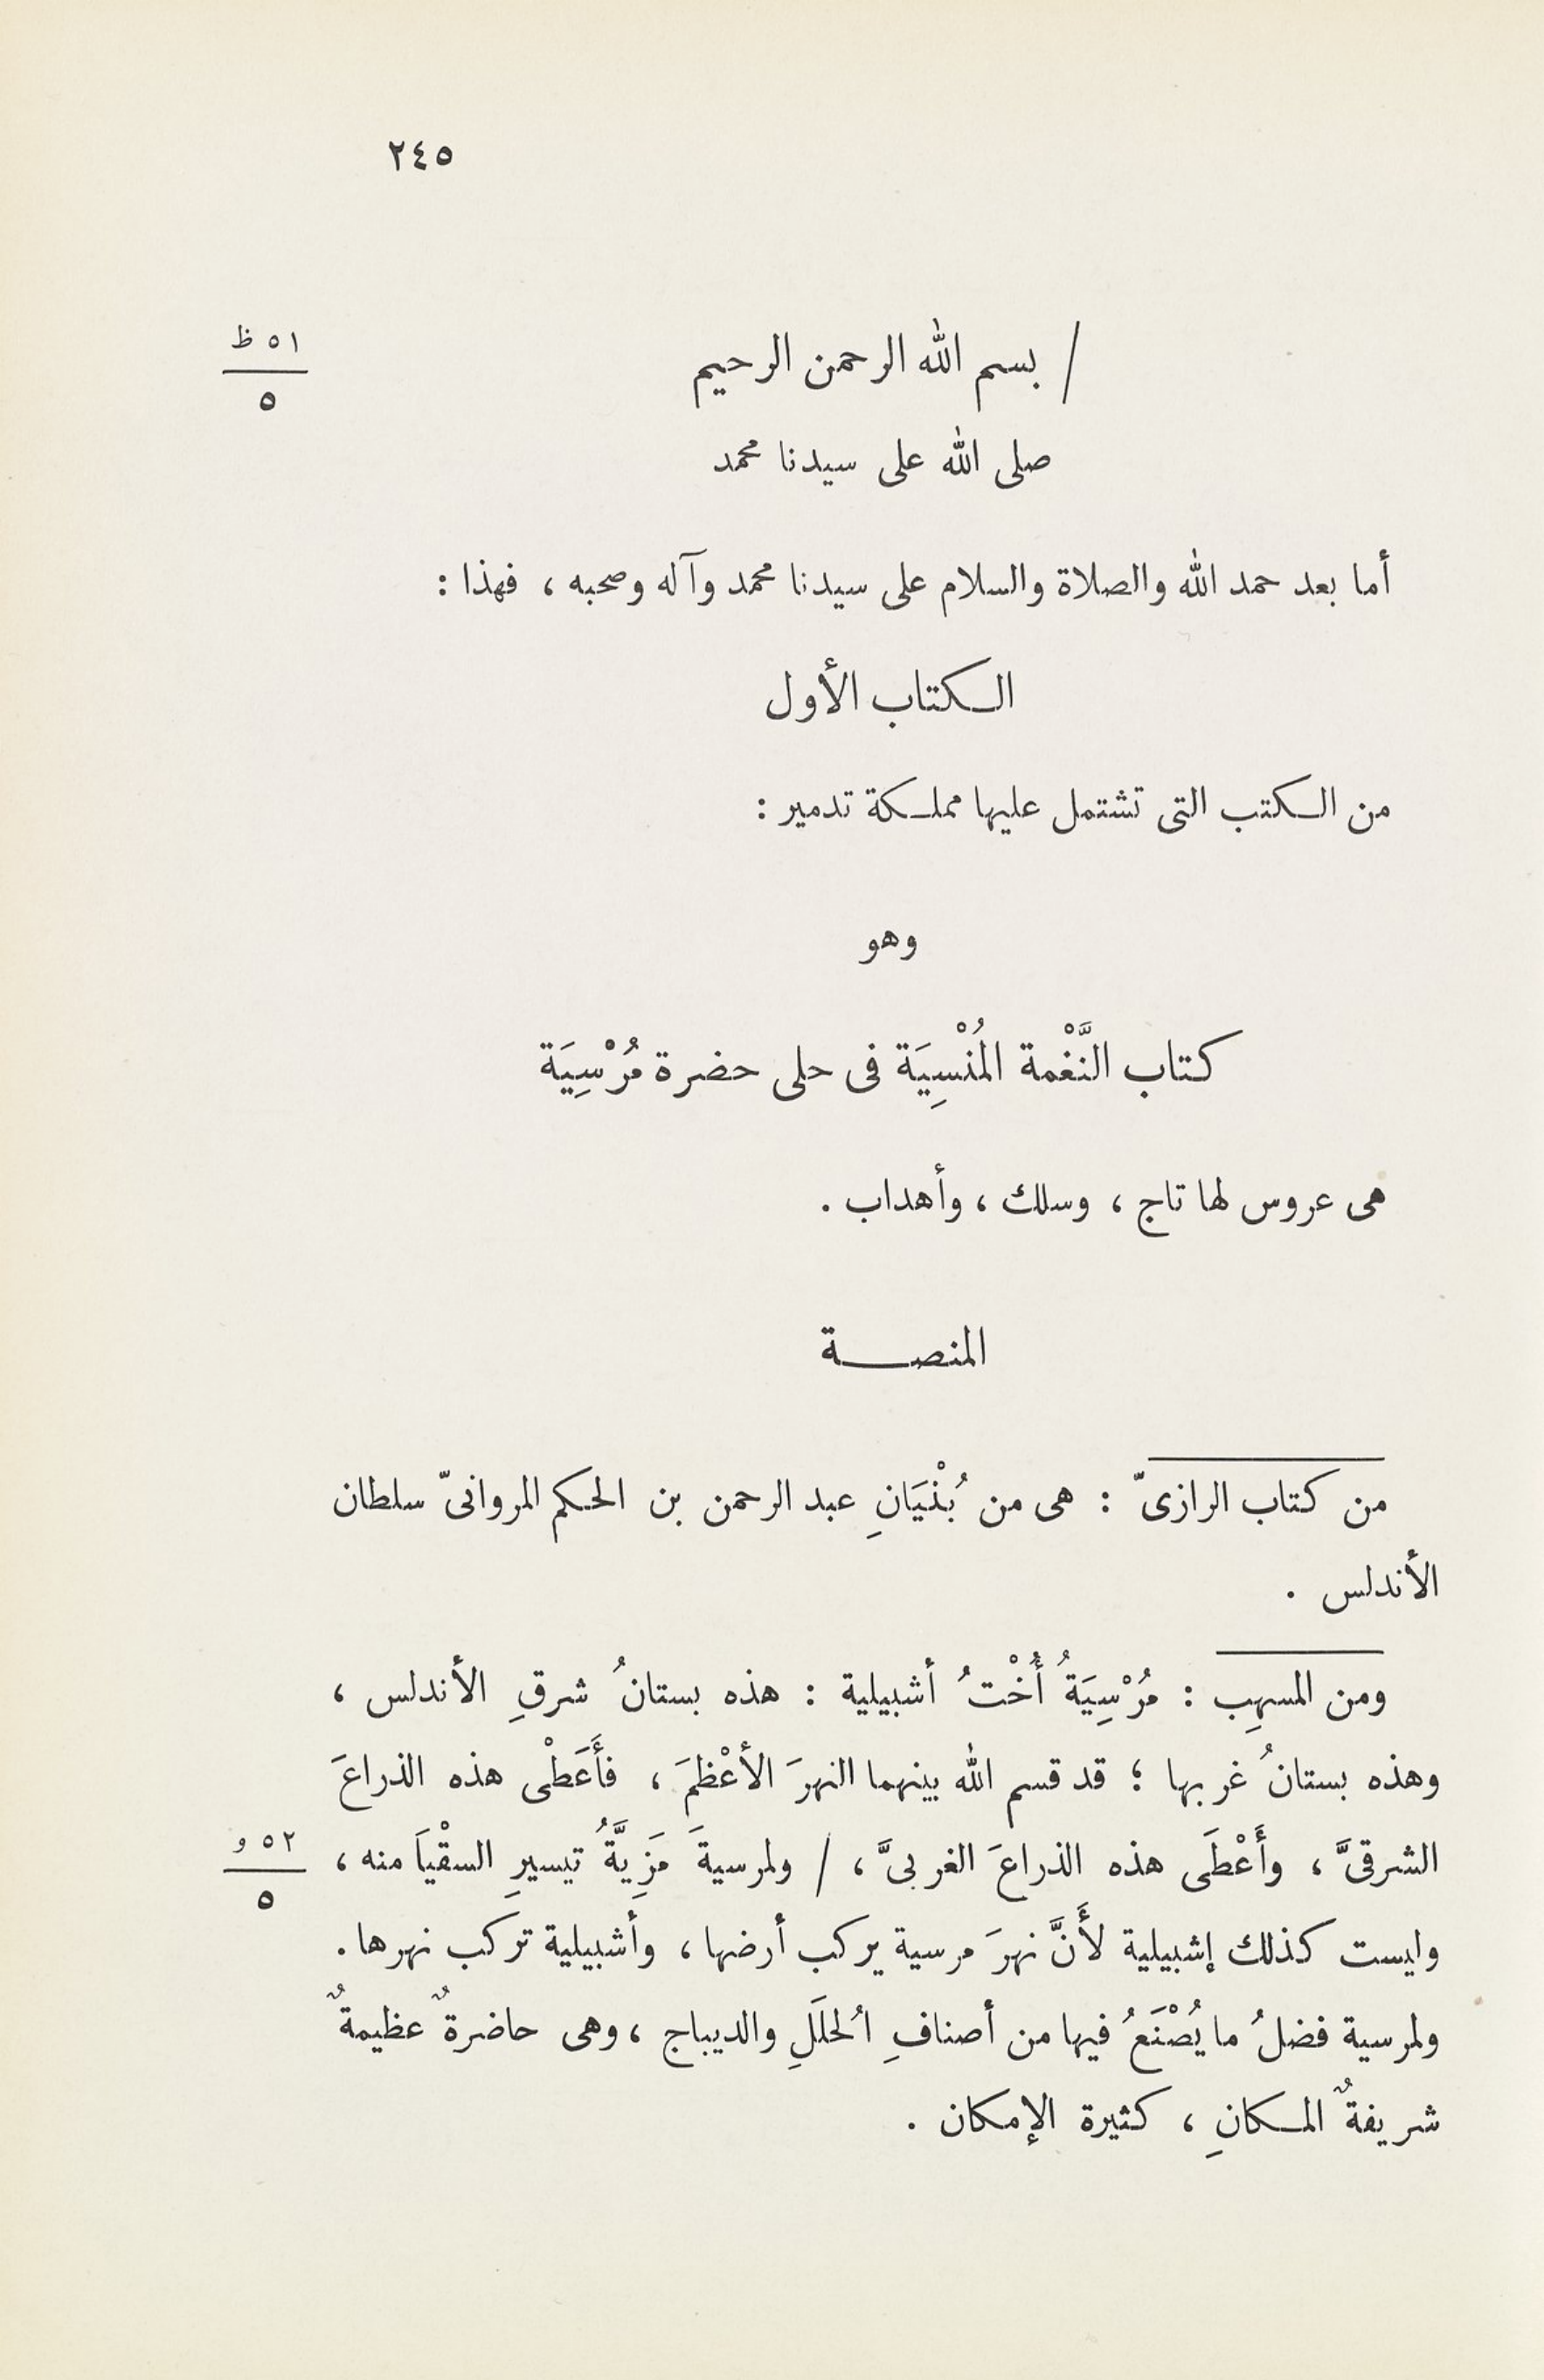 ٢٤٥
/ بسم الله الرحمن الرحيم
٥١ ظ
٥
صلى الله على سيدنا محمد
أما بعد حمد الله والصلاة والسلام على سيدنا محمد وآله وصحبه ، فهذا :
الكتاب الأول
من الكتب التى تشتمل عليها مملكة تدمير :
وهو
كتاب النَّغْمة المُنْسِيَة فى حلى حضرة مُرْسِيَة
هى عروس لها تاج ، وسلك ، وأهداب .
المنصة
من كتاب الرازىّ : هى من بُنْيَانِ عبد الرحمن بن الحكم المروانىّ سلطان
الأندلس .
ومن المسهِب : مُرْسِيَةُ أُخْتُ أشبيلية : هذه بستانُ شرقِ الأندلس ،
وهذه بستانُ غربها ؛ قد قسم الله بينهما النهرَ الأعْظمَ ، فأَعَطْى هذه الذراعَ
الشرقىَّ ، وأَعْطَى هذه الذراعَ الغربىَّ ، / ولمرسيةَ مَزِيَّةُ تيسيرِ السقْياَ منه ،
٥٢ و
٥
وليست كذلك إشبيلية لأَنَّ نهرَ مرسية يركب أرضها ، وأشبيلية تركب نهرها .
ولمرسية فضلُ ما يُصْنَعُ فيها من أصنافِ الُحلَلِ والديباج ، وهى حاضرةٌ عظيمةٌ
شريفةٌ المكانِ ، كثيرة الإمكان .